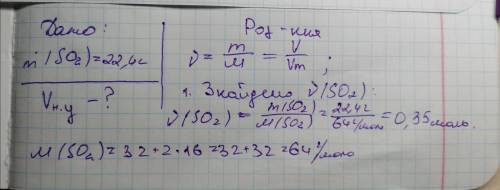 Дано:
m(SO₂)=22,4г
Vн.у - ?
Роз-ння
ν = m/M = V/Vm ;
1. Знайдемо ν(SO₂):
ν(SO₂) = m(SO₂)/M(SO₂) = 22,4г/64г/моль = 0,35 моль.
M(SO₂) = 32+2·16 = 32+32 = 64г/моль